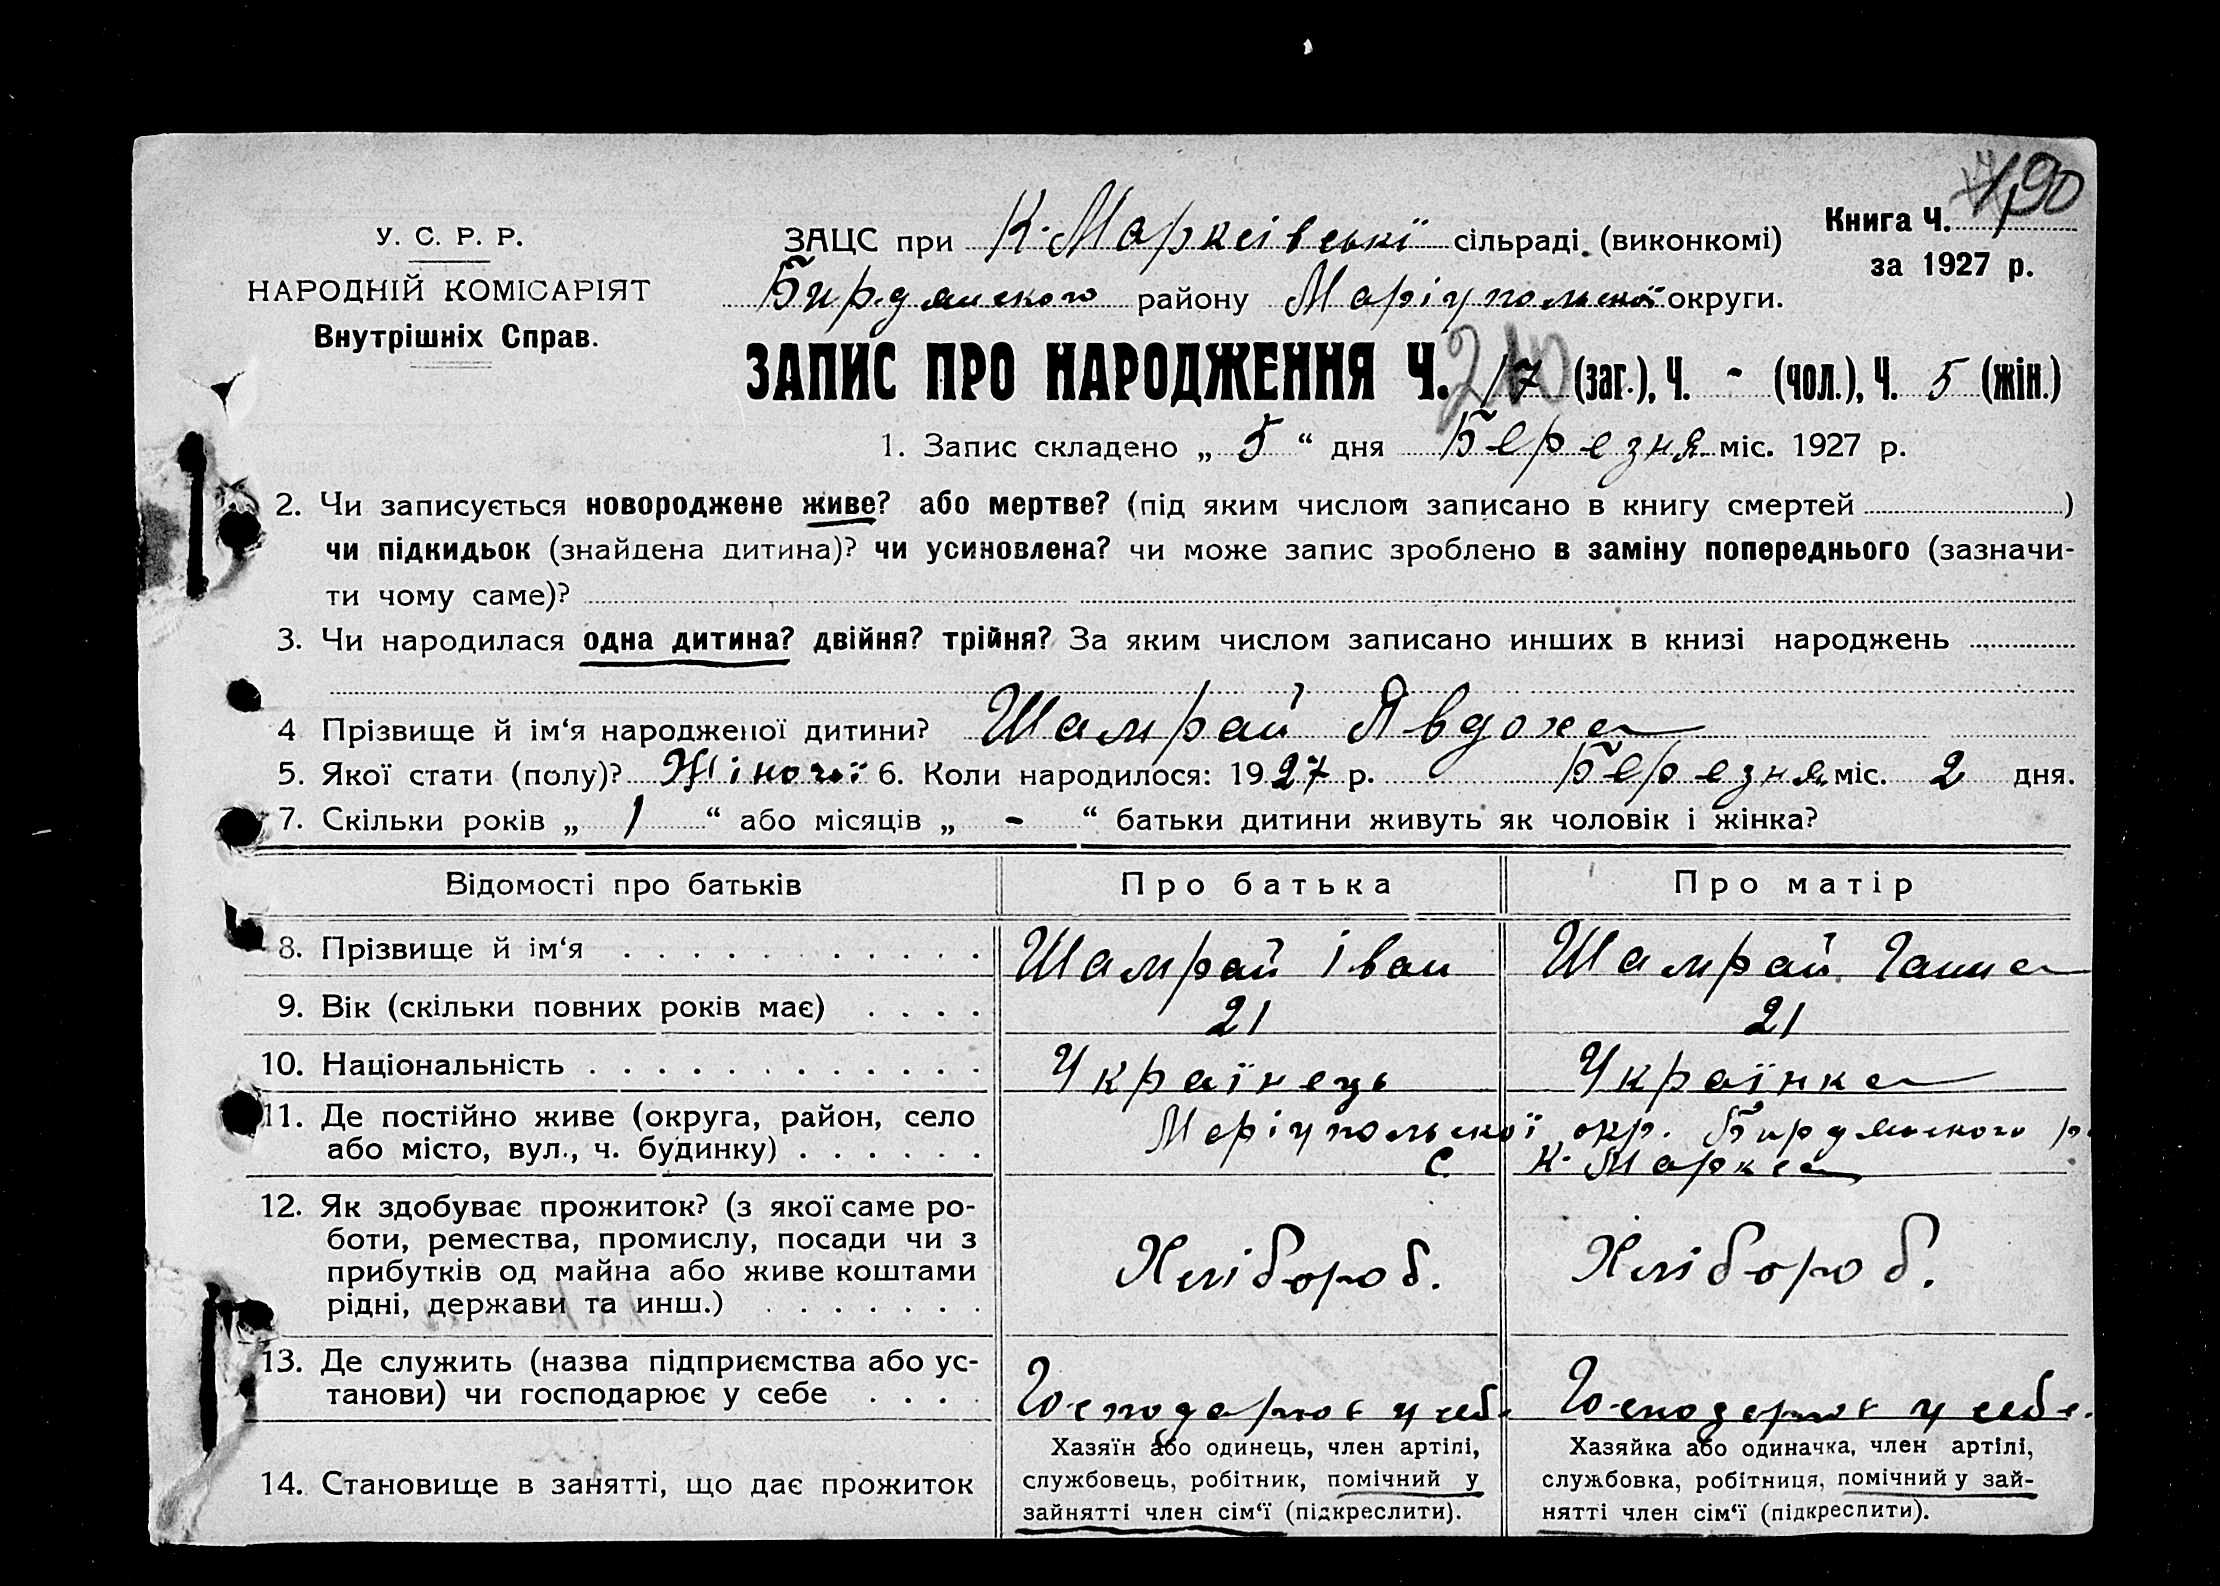 У. С. Р. Р.
НАРОДНІЙ КОМІСАРІЯТ
Внутрішніх Справ.
ЗАЦС при К-Марксівські сільраді. (виконкомі)
Бирдянского району Маріупольської округи.
Книга Ч. 190
за 1927 р.
ЗАПИС ПРО НАРОДЖЕННЯ Ч. 17 (заг.), Ч. - (чол.), Ч. 5 (жін.)
1. Запис складено „ 5 “ дня Березня міс. 1927 р.
2. Чи записується новороджене живе? або мертве? (під яким числом записано в книгу смертей )
чи підкидьок (знайдена дитина)? чи усиновлена? чи може запис зроблено в заміну попереднього (зазначи-
ти чому саме)?
3. Чи народилася одна дитина? двійня? трійня? За яким числом записано инших в книзі народжень
4 Прізвище й ім‘я народженої дитини? Шамрай Явдоха
5. Якої стати (полу)? Жіночої 6. Коли народилося: 1927 р. Березня міс. 2 дня.
7. Скільки років „ 1 “ або місяців „ - “ батьки дитини живуть як чоловік і жінка?
Відомості про батьків Про батька Про матір
8. Прізвище й ім‘я Шамрай Іван Шамрай Ганна
9. Вік (скільки повних років має) 21 21
10. Національність Українець Українка
11. Де постійно живе (округа, район, село Маріупольської окр. Бирдянского р.
або місто, вул., ч. будинку) С. К-Маркса
12. Як здобуває прожиток? (з якої саме ро-
боти, ремества, промислу, посади чи з
прибутків од майна або живе коштами Хлібороб. Хлібороб.
рідні, держави та инш.)
13. Де служить (назва підприємства або ус-
танови) чи господарює у себе Господарює у себе Господарює у себе.
14. Становище в занятті, що дає прожиток
Хазяїн або одинець, член артілі,
службовець, робітник, помічний у
зайнятті член сім‘ї (підкреслити).
Хазяйка або одиначка, член артілі,
службовка, робітниця, помічний у зай-
нятті член сім‘ї (підкреслити).